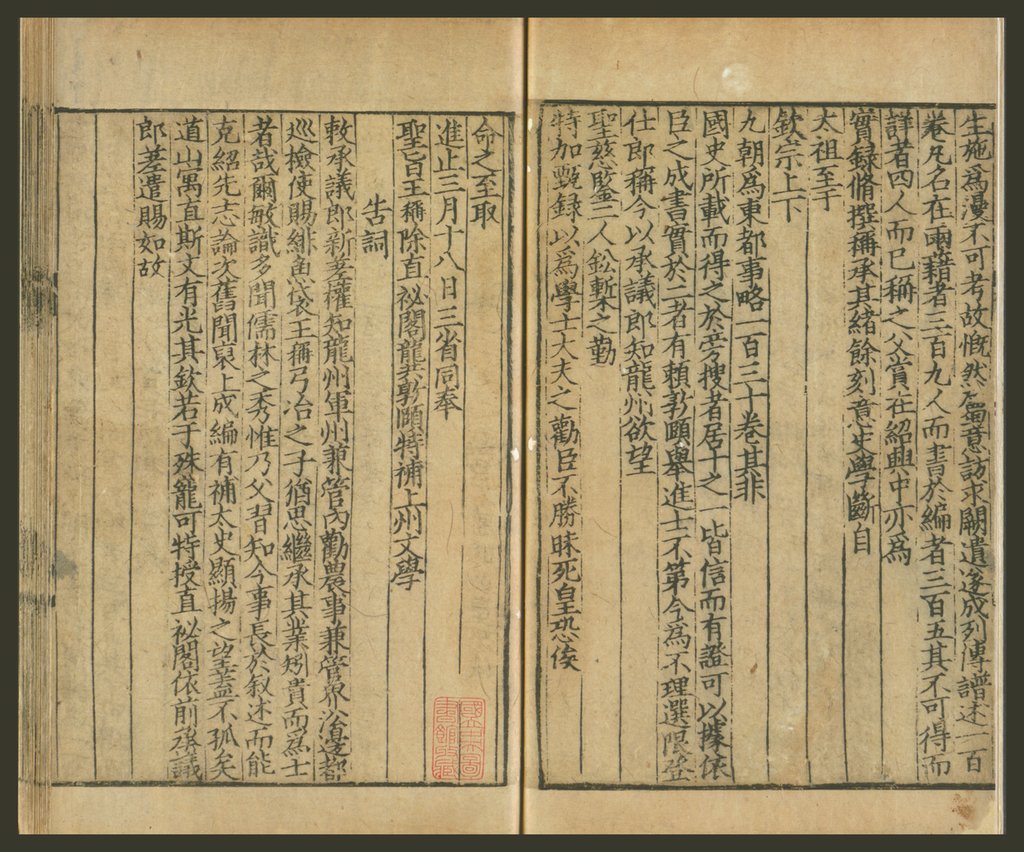 生施爲漫不可考故慨然蜀意訪求闕遺遂成列傳譜述一百
卷凡名在兩籍者三百九人而書於編者三百五其不可得而
詳者四人而已稱之父賞在紹興中亦爲
實録脩撰稱承其緒餘刻意史學斷自
太祖至于
欽宗上下
九朝爲東都事略一百三十卷其非
國史所載而得之於旁搜者居十之一皆信而有證可以據依
臣之成書實於二者有賴敦頤舉進士不第今爲不理選限登
仕郎稱今以承議郎知龍州欲望
聖慈鑒二人鈆槧之勤
特加甄録以爲學士大夫之勸臣不勝昧死皇恐俟
命之至取
進止三月十八日三省同奉
聖旨王稱除直祕閣龔敦頤特補上州文學
告詞
敕承議郎新差權知龍州軍州兼管內勸農事兼管界沿邊都
巡檢使賜緋魚袋王稱弓冶之子猶思繼承其業矧貴而爲士
者哉爾敏識多聞儒林之秀惟乃父習知今事長於叙述而能
克紹先志論次舊聞裒上成編有補太史顯揚之望蓋不孤矣
道山寓直斯文有光其欽若于殊寵可特授直祕閣依前承議
郎差遣賜如故
國立中央圖書館收藏